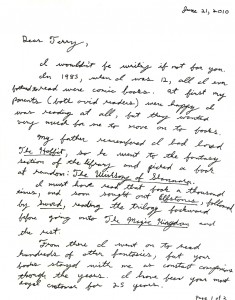 June 21, 2010
Dear Terry,
I wouldn't be writing if not for you.
In 1983, when I was 12, all I ever
read were comic books. At first my
parents (both avid readers) were happy I
was reading at all, but they wanted
very much for me to move on to books.
My father remembered I had loved
The Hobbit, so he went to the fantasy
section of the library and picked a book
at random: The Wishsong of Shannara.
I must have read that book a thousand
times, and soon sought out Elfstones, followed
by Sword, reading the trilogy backward
before going onto The Magic Kingdom and
the rest.
From there I went on to read
hundreds of other fantasies, but your
books stayed with me as constant companions
through the years. I have been your most
loyal customer for 25 years.
Page 1 of 2